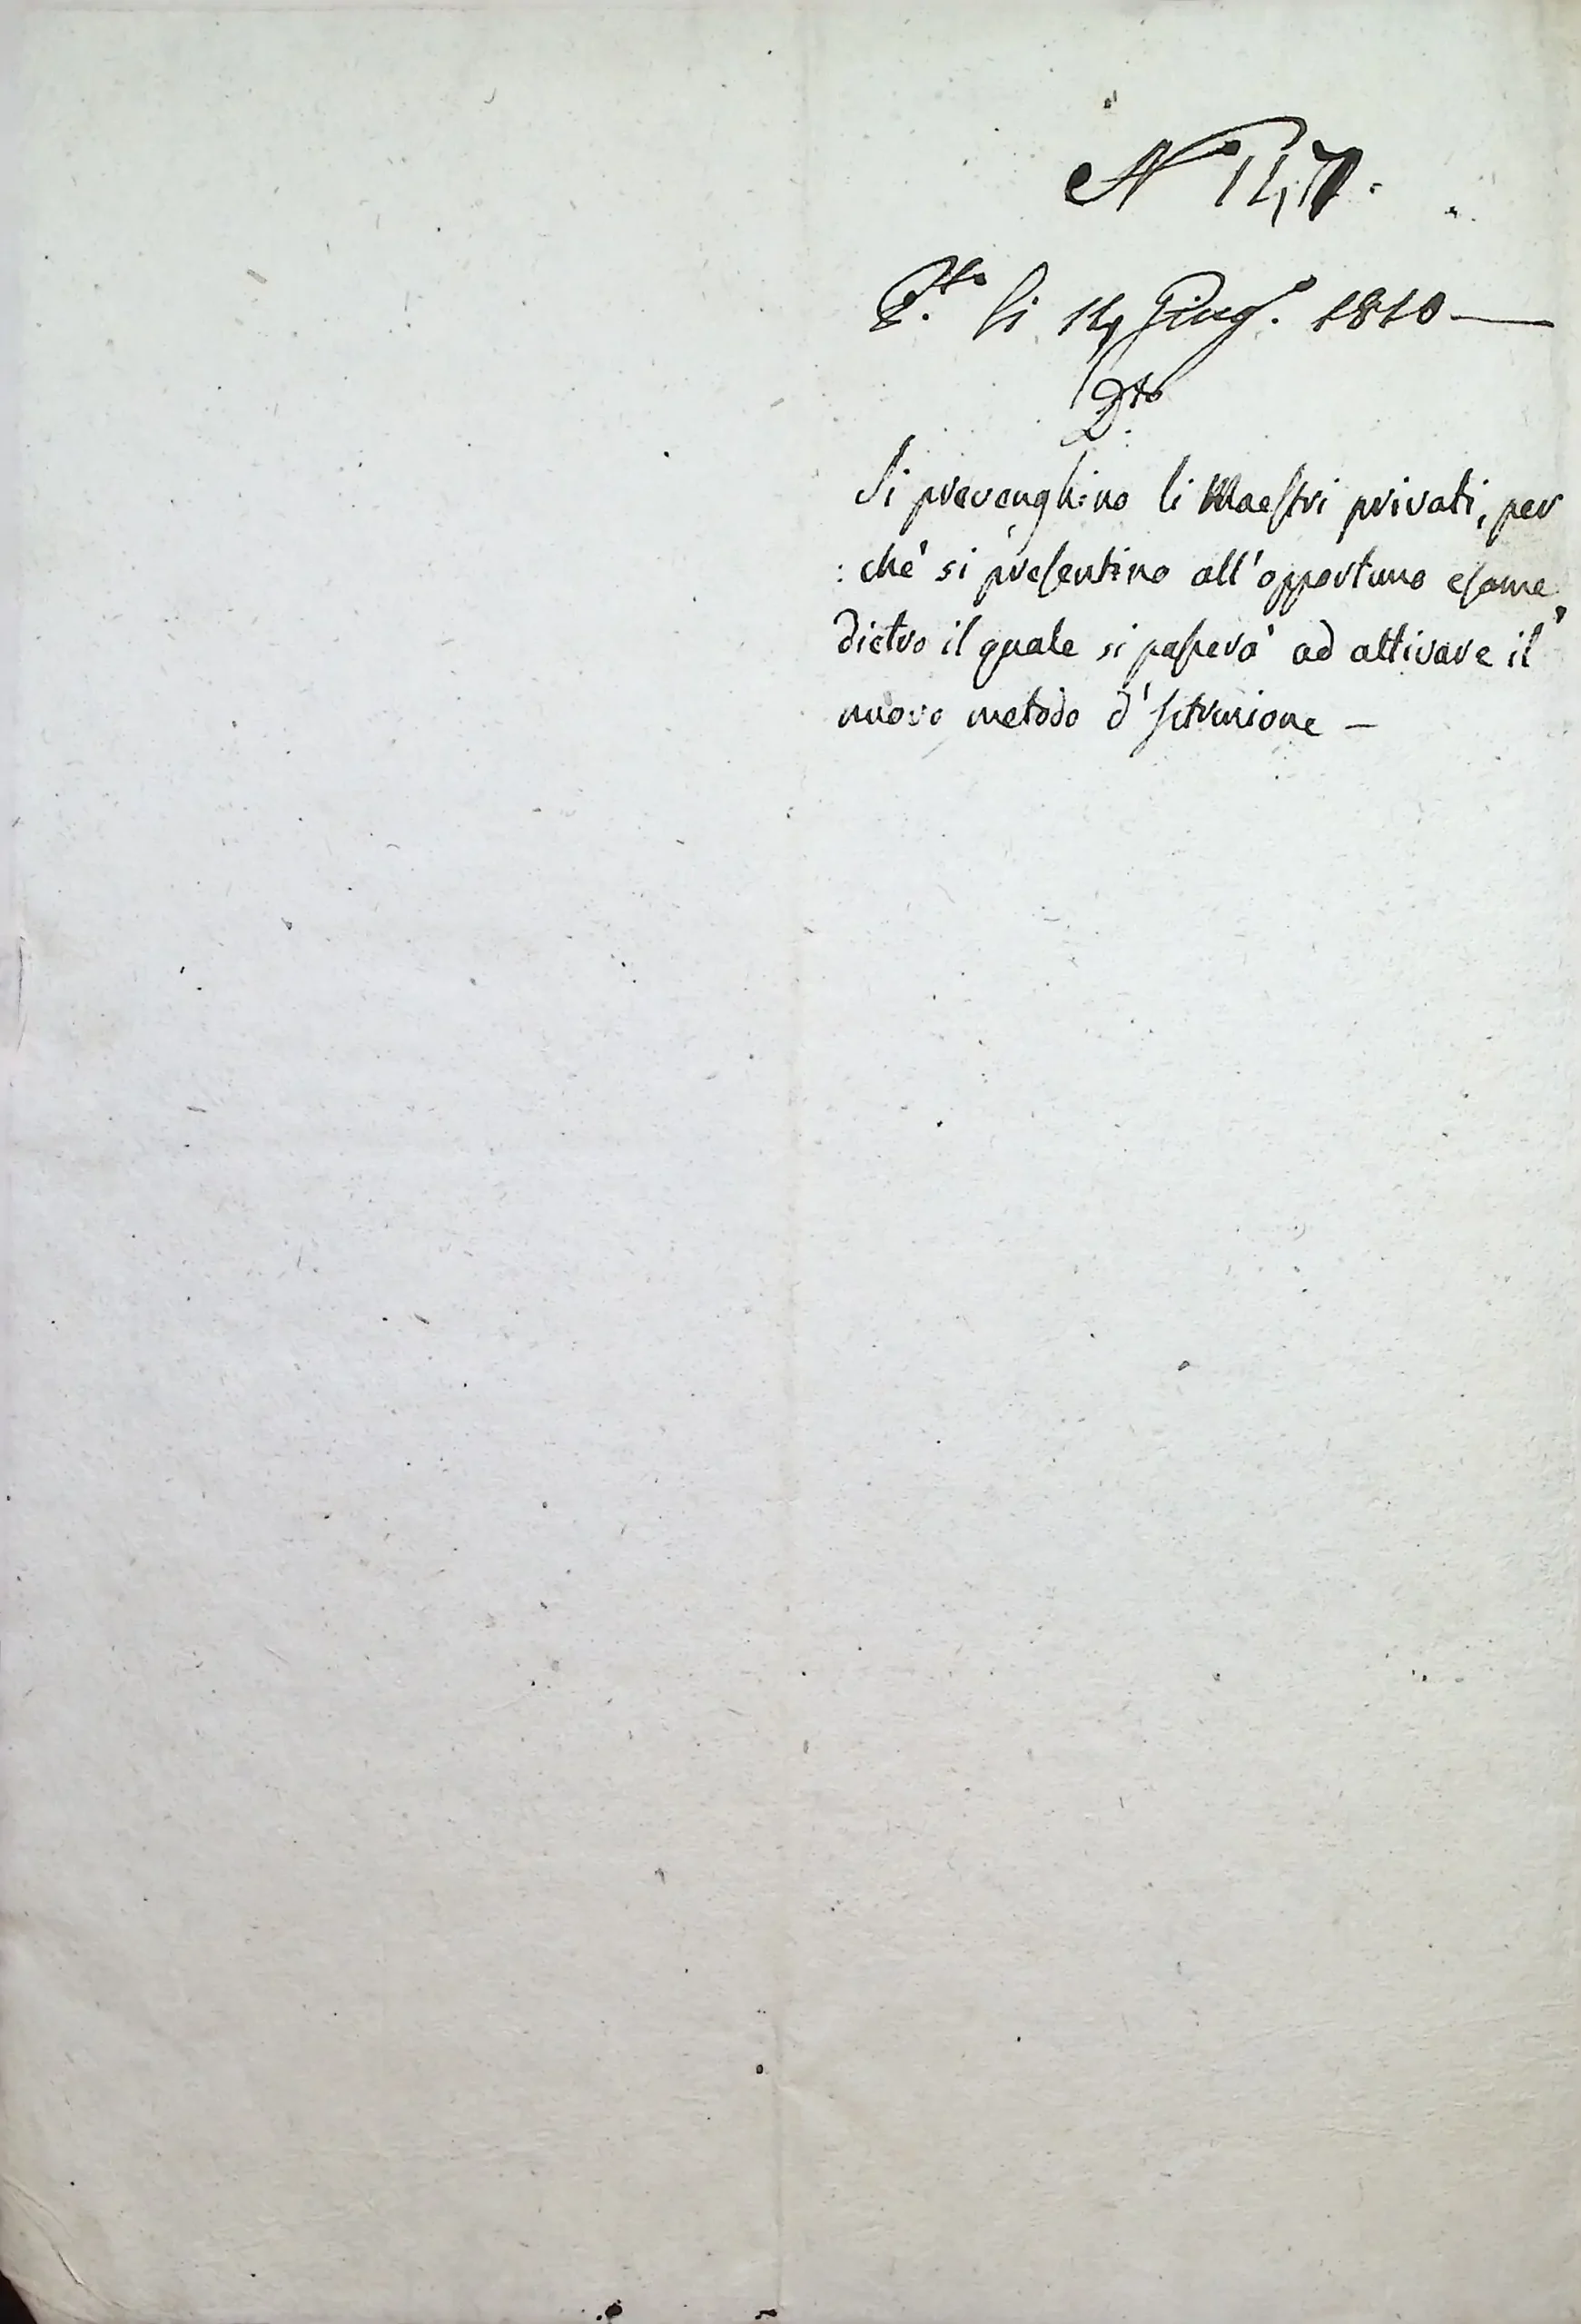 N° 147.
P.to li 14 Giug.o 1810 —
D.to
Si prevenghino li Maestri privati, per
: chè si presentino all'opportuno esame,
dietro il quale si passerà ad attivare il
nuovo metodo d'Istruzione —